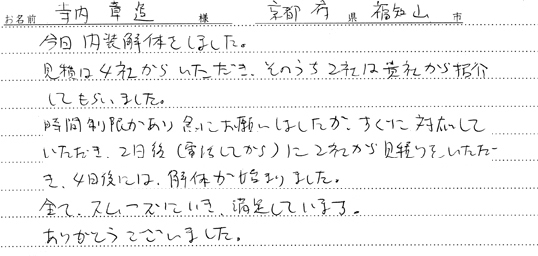 お名前 寺内 章造 様 京都 府 県 福知山 市
今回 内装解体をしました。
見積は4社からいただき、そのうち2社は貴社から紹介
してもらいました。
時間制限があり急にお願いしましたが、すぐに対応して
いただき、2日後(電話してから)に2社から見積りをいただ
き、4日後には、解体が始まりました。
全て、スムーズにいき、満足しています。
ありがとうございました。